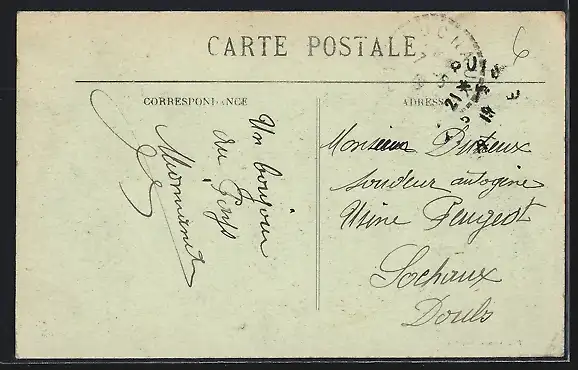 CARTE POSTALE
CORRESPONDANCE
ADRESSE
Un bonjour
du Pays
Monsieur Duteux
soudeur autogène
Usine Peugeot
Sochaux
Doubs
6
21
19